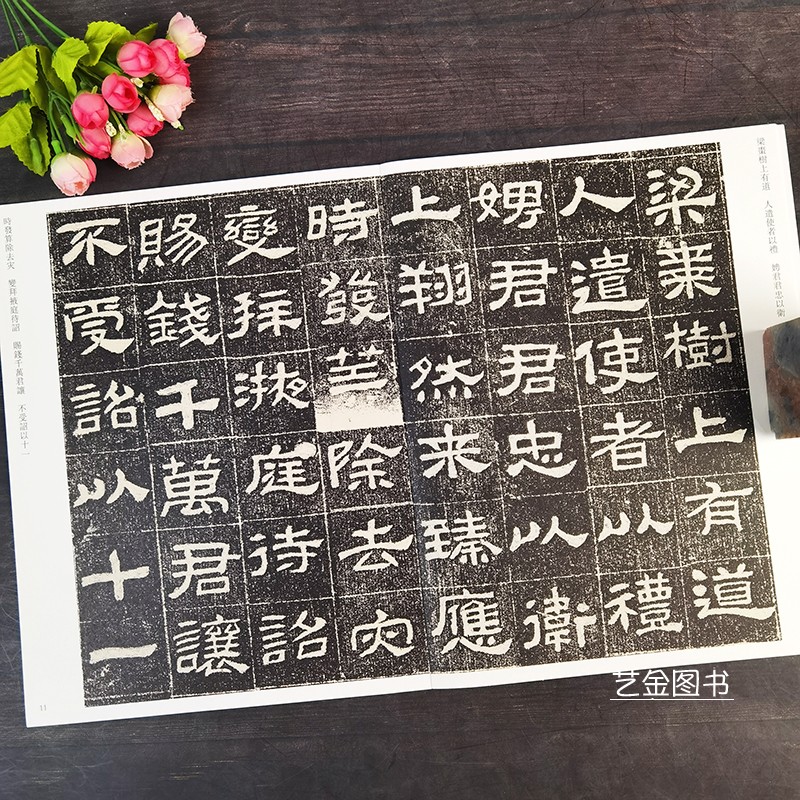 梁棗樹上有道　人遣使者以禮　娉君君忠以衛
梁棗樹上有道
人遣使者以禮
娉君君忠以衛
上翔然來臻應
時發筭除去灾
變拜掖庭待詔
賜錢千萬君讓
不受詔以十一
時發筭除去灾　變拜掖庭待詔　賜錢千萬君讓　不受詔以十一
11
艺金图书